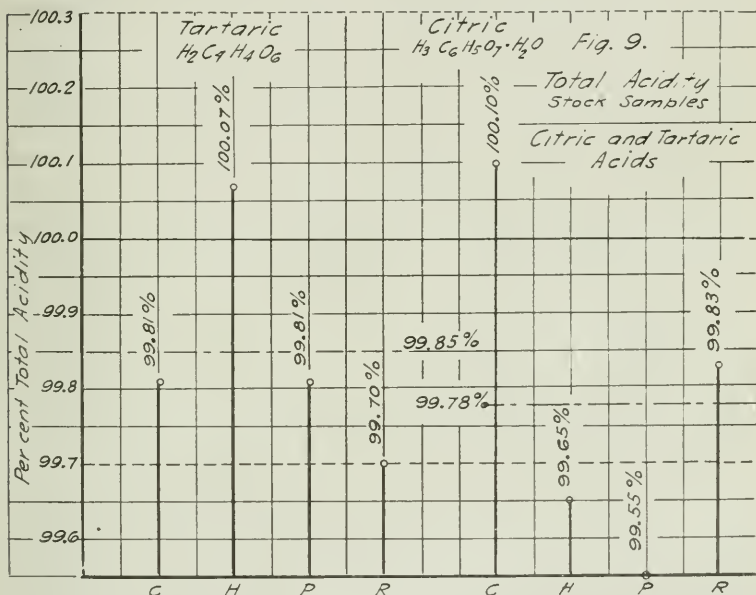 Tartaric
H2C4H4O6
Citric
H3C6H5O7·H2O
Fig. 9.
Total Acidity
Stock Samples
Citric and Tartaric
Acids
Per cent Total Acidity
100.3
100.2
100.1
100.0
99.9
99.8
99.7
99.6
99.81%
100.07%
99.81%
99.70%
99.85%
99.78%
100.10%
99.65%
99.55%
99.83%
C H P R C H P R